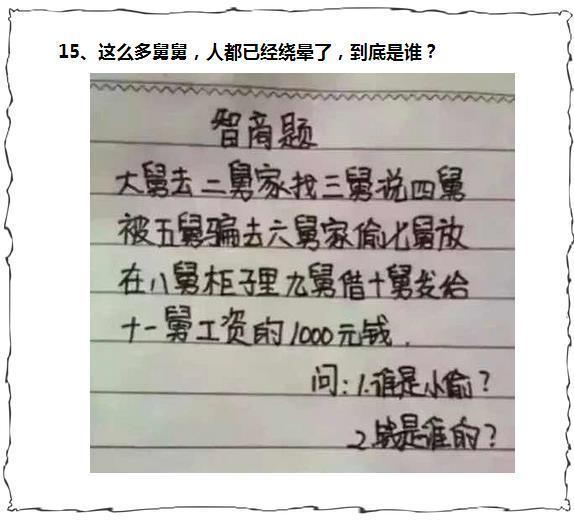 15、这么多舅舅，人都已经绕晕了，到底是谁？
智商题
大舅去二舅家找三舅说四舅
被五舅骗去六舅家偷七舅放
在八舅柜子里九舅借十舅发给
十一舅工资的1000元钱.
问:1.谁是小偷?
2.钱是谁的?